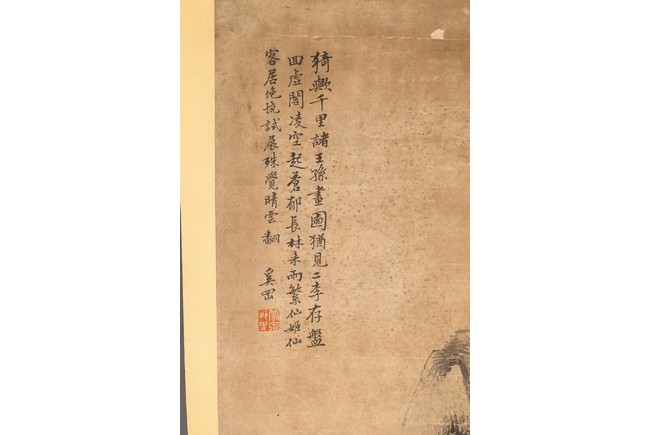 猗歟千里諸王孫畫圖猶見二李存盤
回虛閣凌空起蒼郁長林未雨繁仙姬仙
客居絶境試展殊覺晴雲翻
奚岡